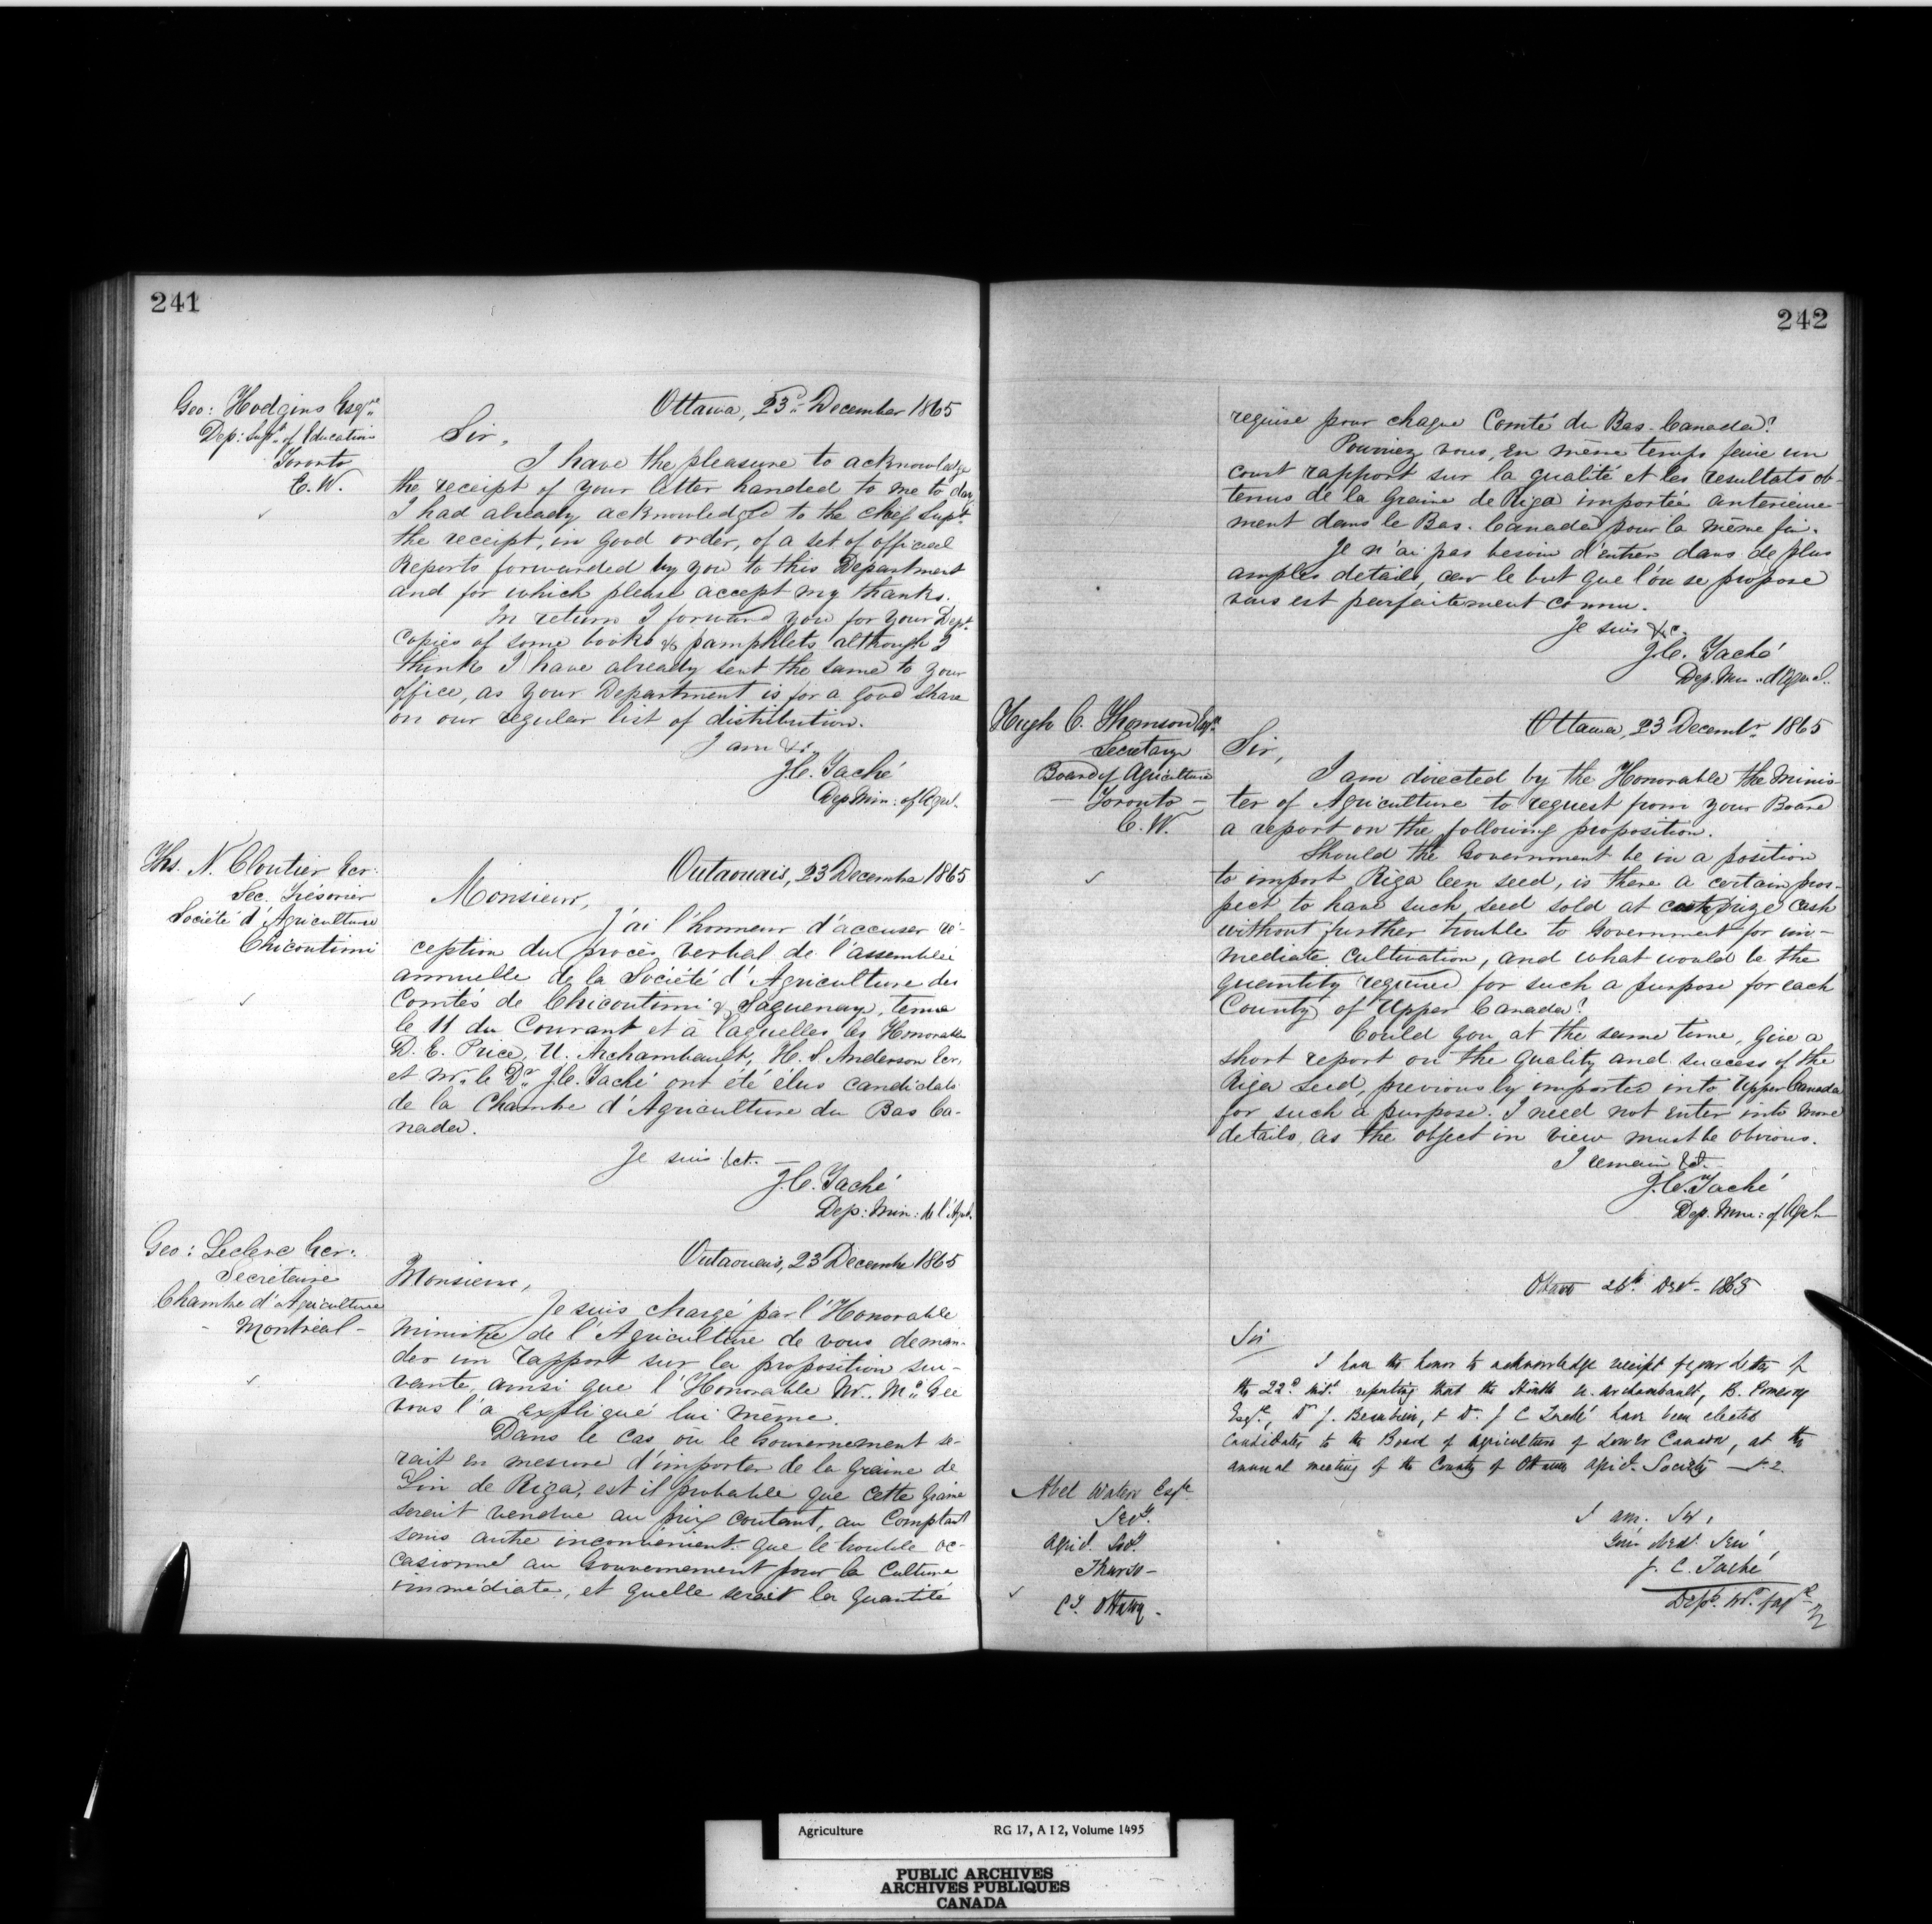 241
Geo: Hodgins Esqre
Dep: Supt. of Education
Toronto
C.W.
Ottawa, 23d. December 1865
Sir,
I have the pleasure to acknowledge
the receipt of your letter handed to me to day
I had already acknowledged to the chef Supt.
the receipt, in good order, of a set of official
Reports forwarded by you to this Department
and for which please accept my thanks.
In return I forward you for your Dept.
Copies of some books & pamphlets although I
think I have already sent the same to your
office, as your Department is for a good share
on our regular list of distribution.
I am &c.
J.C. Taché
Dep Min: of Agri.
Ths. N. Cloutier Ecr:
Sec. Trésorier
Société d'Agriculture
Chicoutimi
Outaouais, 23 Decembre 1865
Monsieur,
J'ai l'honneur d'accuser ré-
ception du procès verbal de l'assemblée
annuelle de la Société d'Agriculture des
Comtés de Chicoutimi & Saguenay, tenue
le 11 du Courant et à laquelles les Honorables
D. E. Price, U. Archambault, H. S. Anderson Ecr.
et Mr. le Dr. J.C. Taché ont été élus candidats
de la Chambre d'Agriculture du Bas Ca-
nada.
Je suis &ct.
J.C. Taché
Dep: Min: de l'Agrl.
Geo: Leclerc Ecr:
Secretaire
Chambre d'Agriculture
- Montréal -
Outaouais, 23 Decembre 1865
Monsieur,
Je suis chargé par l'Honorable
Ministre de l'Agriculture de vous deman-
der un rapport sur la proposition sui-
vante, ainsi que l'Honorable Mr. McGee
vous l'a expliqué lui même.
Dans le cas où le Gouvernement se-
rait en mesure d'importer de la Graine de
Lin de Riga, est il probable que cette graine
serait vendue au prix coutant, au Comptant
sans autre inconvénient que le trouble oc-
casionné au Gouvernement pour la Culture
immédiate, et quelle serait la quantité
242
requise pour chaque Comté du Bas-Canada?
Pourriez vous, en même temps faire un
court rapport sur la qualité et les resultats ob-
tenus de la Graine de Riga importée anterieure-
ment dans le Bas-Canada pour la même fin.
Je n'ai pas besoin d'entrer dans de plus
amples details, car le but que l'on se propose
vous est parfaitement connu.
Je suis &c.
J.C. Taché
Dep. Min. d'Agricul.
Hugh C. Thomson Esqre
Secretary
Board of Agriculture
- Toronto -
C.W.
Ottawa, 23 Decembr. 1865
Sir,
I am directed by the Honorable the Minis-
ter of Agriculture to request from your Board
a report on the following proposition.
Should the Government be in a position
to import Riga leen seed, is there a certain pros-
pect to have such seed sold at cost prize cash
without further trouble to Government for im-
mediate cultivation, and what would be the
quantity required for such a purpose for each
County of Upper Canada?
Could you at the same time, give a
short report on the quality and success of the
Riga Seed, previously imported into Upper Canada
for such a purpose. I need not enter into more
details, as the object in view must be obvious.
I remain &ct.
J.C. Taché
Dep. Min: of Agrl
Ottawa 26th. Dect. 1865
Sir
I have the honor to acknowledge receipt of your letter of
the 22d. inst. reporting that the Honble U. Archambault, B. Pomeroy
Esqre, Dr J. Beaubien, & Dr. J C Taché have been elected
Candidates to the Board of Agriculture of Lower Canada, at the
annual meeting of the County of Ottawa Agricl. Society No. 2.
Abel Waters Esqre
Secy.
Agricl. Socy.
Thurso -
Cy. Ottawa -
I am. Sir,
Your Obedt. Servt.
J. C. Taché
Agriculture RG 17, A I 2, Volume 1495
PUBLIC ARCHIVES
ARCHIVES PUBLIQUES
CANADA